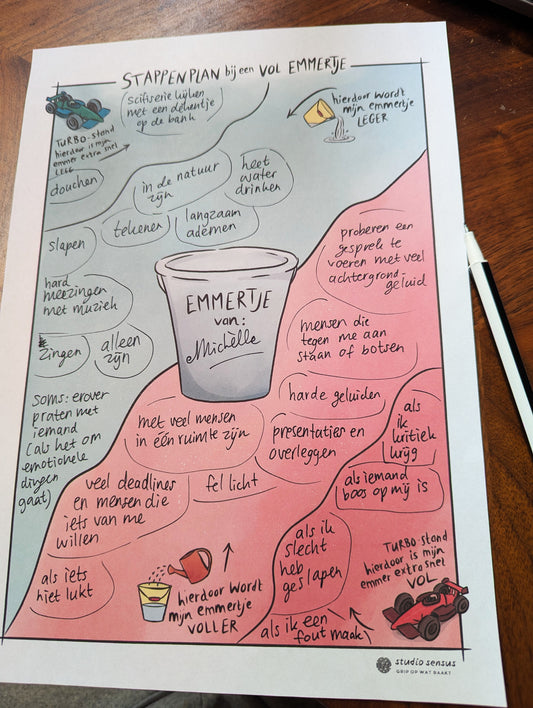 STAPPENPLAN bij een VOL EMMERTJE
scifiserie kijken
met een dekentje
op de bank
TURBO-stand
hierdoor is mijn
emmer extra snel
LEEG
douchen
hierdoor wordt
mijn emmertje
LEGER
in de natuur
zijn
heet
water
drinken
slapen
tekenen
langzaam
ademen
hard
meezingen
met muziek
zingen
alleen
zijn
Soms: erover
praten met
iemand
(als het om
emotionele
dingen
gaat)
EMMERTJE
van:
Michèlle
proberen een
gesprek te
voeren met veel
achtergrond-
geluid
mensen die
tegen me aan
staan of botsen
harde geluiden
met veel mensen
in één ruimte zijn
presentaties en
overleggen
als
ik
kritiek
krijg
veel deadlines
en mensen die
iets van me
willen
fel licht
als iemand
boos op mij is
als iets
niet lukt
als ik
slecht
heb
geslapen
hierdoor wordt
mijn emmertje
VOLLER
TURBO-stand
hierdoor is mijn
emmer extra snel
VOL
als ik een
fout maak
studio sensus
GRIP OP WAT RAAKT